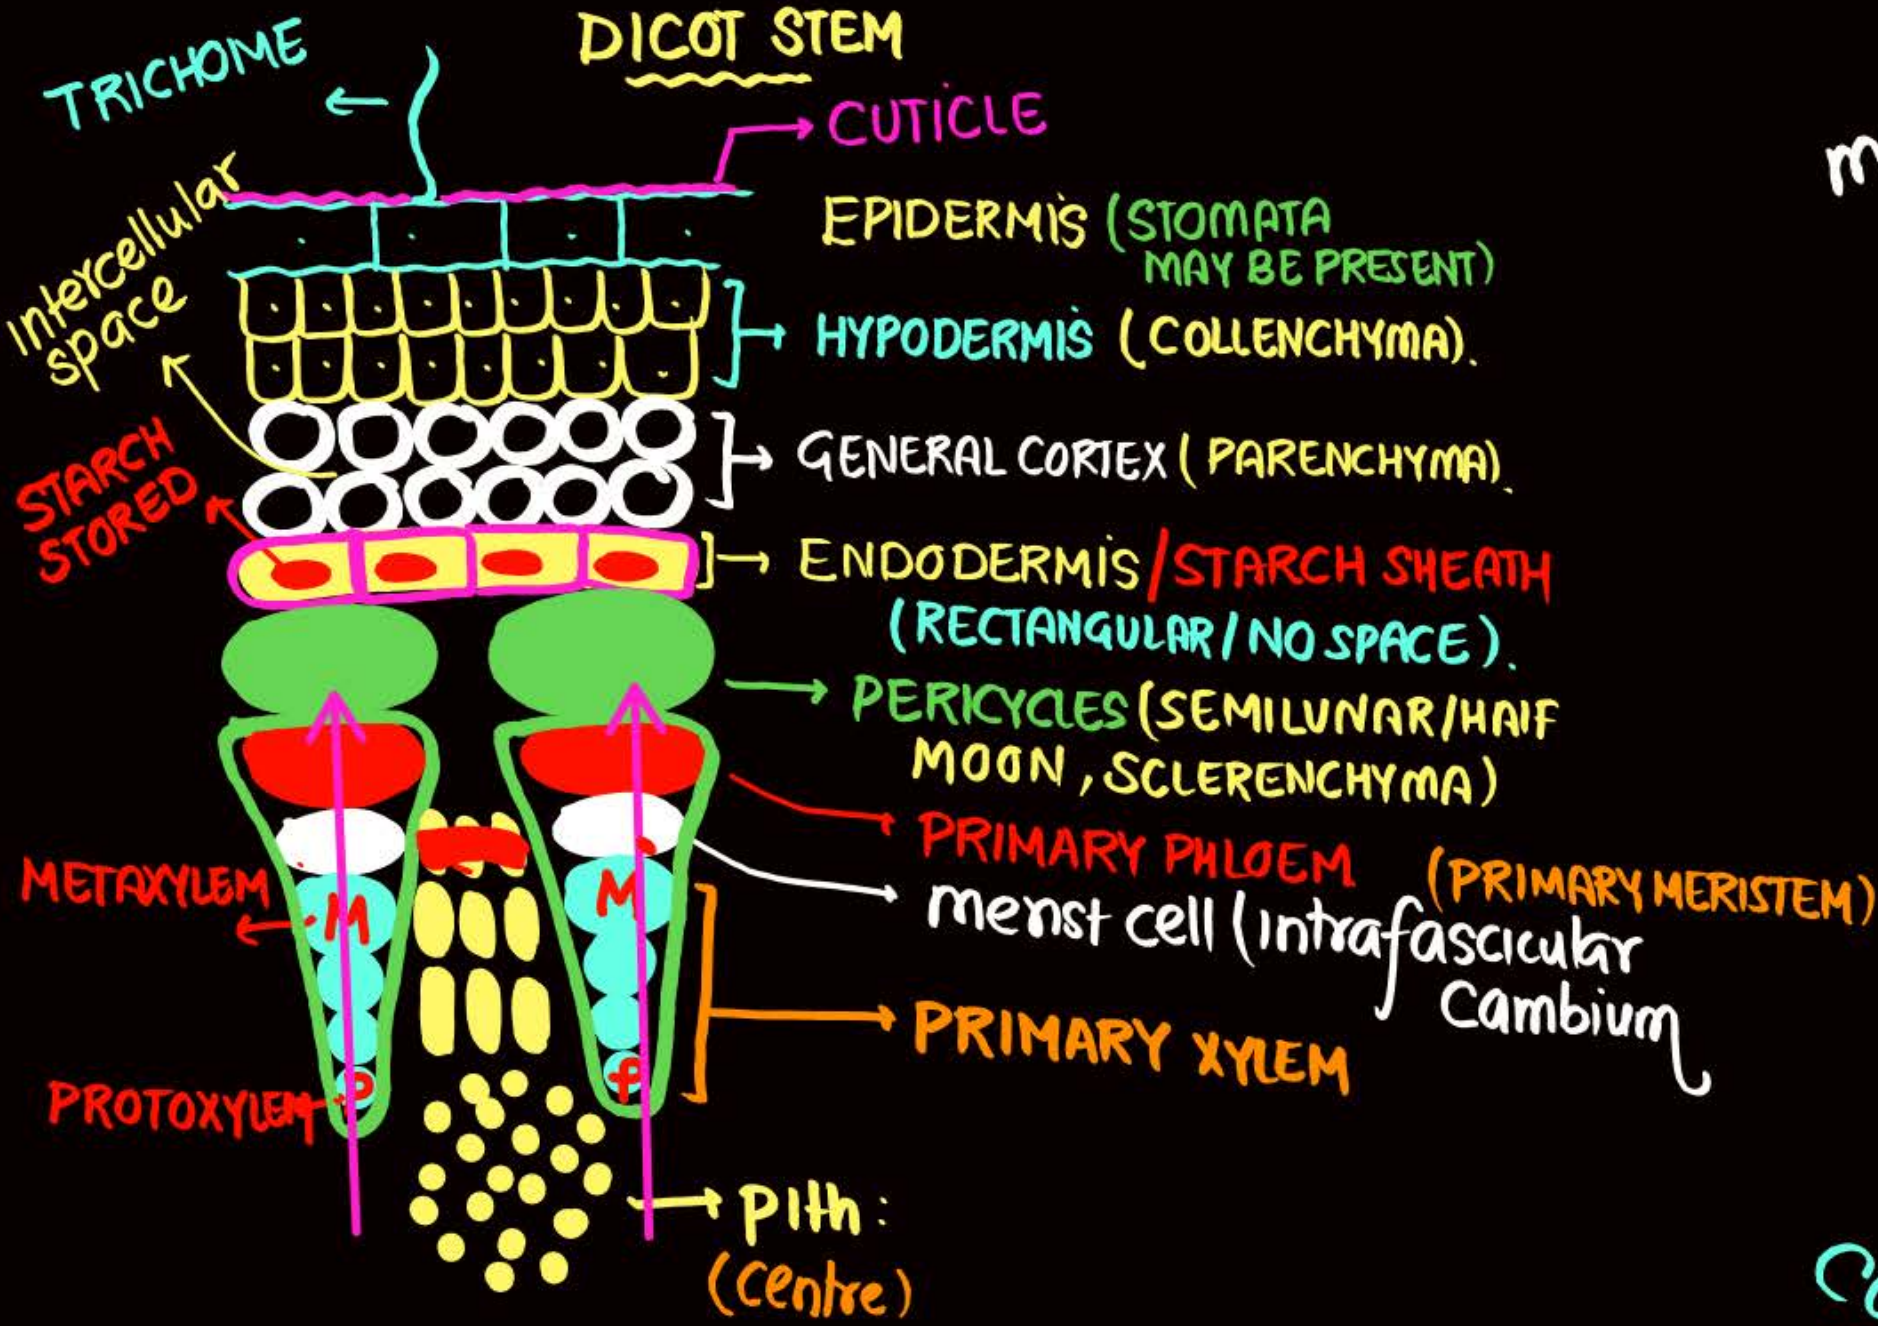 DICOT STEM
TRICHOME
CUTICLE
m
Intercellular
space
EPIDERMIS (STOMATA
MAY BE PRESENT)
HYPODERMIS (COLLENCHYMA).
GENERAL CORTEX (PARENCHYMA).
STARCH
STORED
ENDODERMIS/STARCH SHEATH
(RECTANGULAR/NO SPACE).
PERICYCLES (SEMILUNAR/HAIF
MOON, SCLERENCHYMA)
PRIMARY PHLOEM (PRIMARY MERISTEM)
METAXYLEM
M
M
menst cell (intrafascicular
Cambium
PRIMARY XYLEM
PROTOXYLEM
P
P
pith:
(centre)